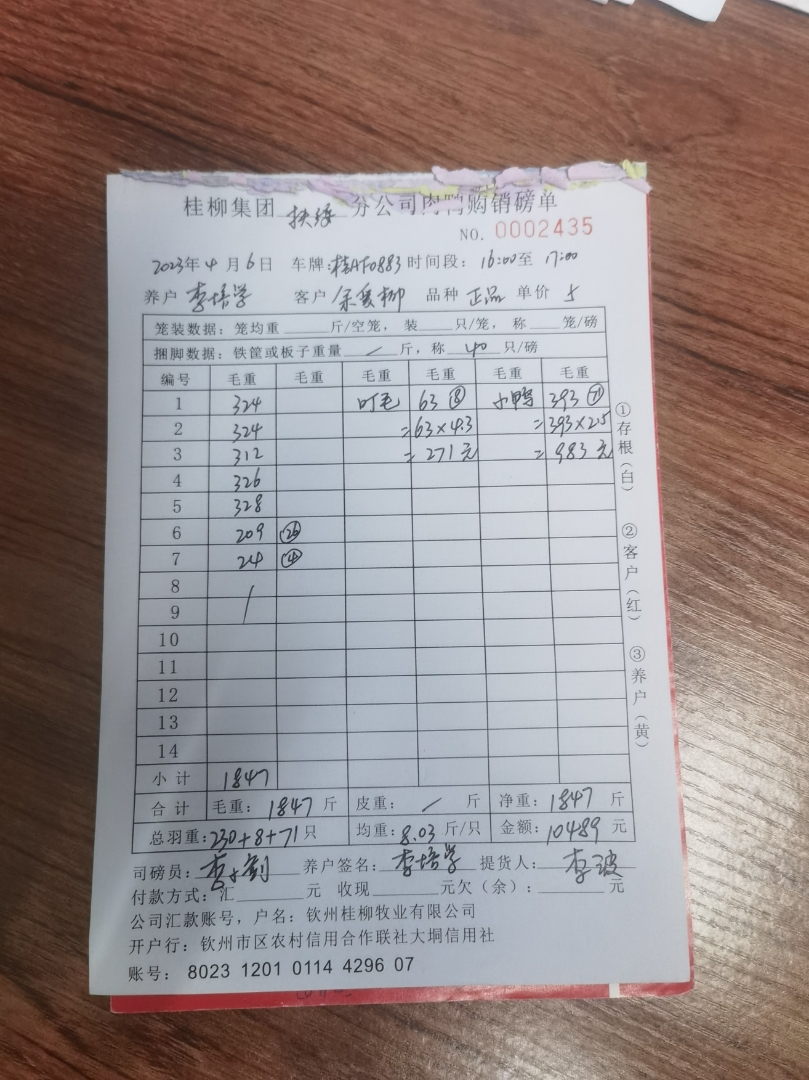 桂柳集团 扶绥 分公司肉鸭购销磅单
NO. 0002435
2023年4月6日 车牌:桂AF0883 时间段: 16:00至 17:00
养户 李培学 客户 余爱柳 品种 正品 单价 5
笼装数据: 笼均重 斤/空笼, 装 只/笼, 称 笼/磅
捆脚数据: 铁筐或板子重量 / 斤, 称 40 只/磅
编号 毛重 毛重 毛重 毛重 毛重 毛重
1 324 叮毛 63 ⑧ 小鸭 393 (71)
2 324 =63×4.3 =393×2.5
3 312 =271元 =983元
4 326
5 328
6 209 (26)
7 24 ④
8 /
9
10
11
12
13
14
小计 1847
合计 毛重: 1847 斤 皮重: / 斤 净重: 1847 斤
总羽重: 230+8+71只 均重: 8.03 斤/只 金额: 10489 元
司磅员: 养户签名: 李培学 提货人: 李波
付款方式: 汇 元 收现 元欠(余): 元
公司汇款账号, 户名: 钦州桂柳牧业有限公司
开户行: 钦州市区农村信用合作联社大垌信用社
账号: 8023 1201 0114 4296 07
①存根(白)
②客户(红)
③养户(黄)